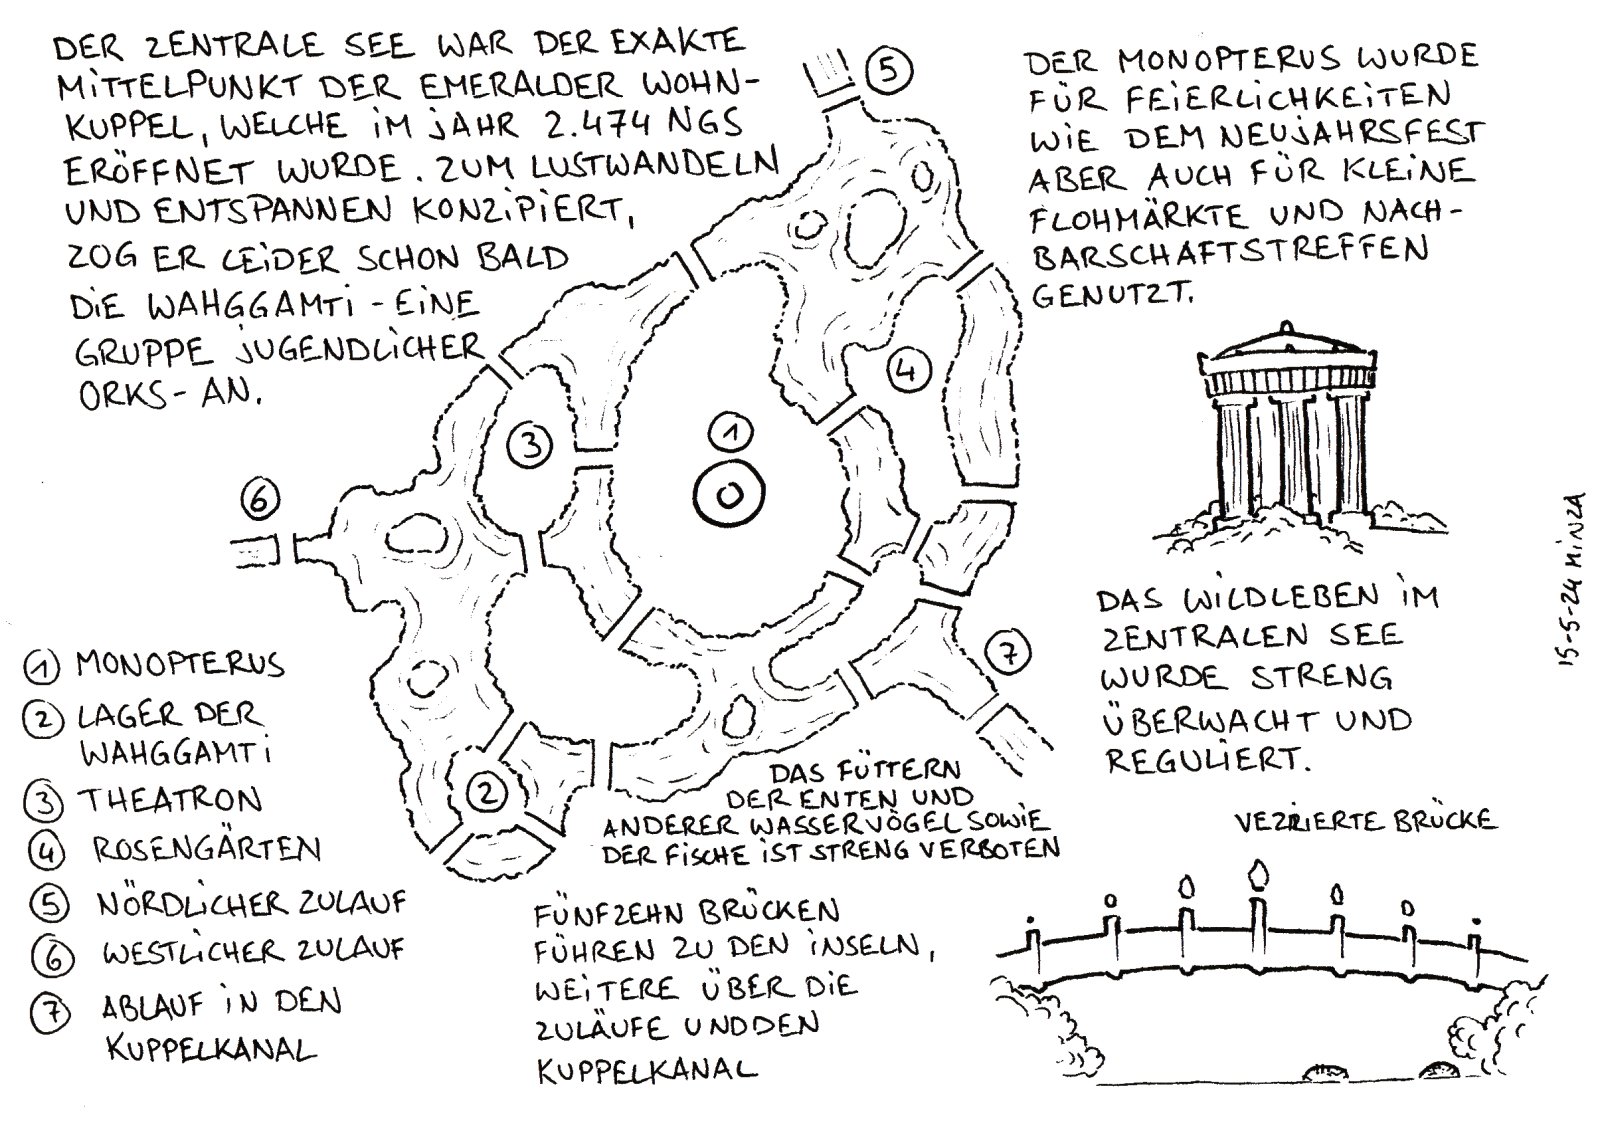 DER ZENTRALE SEE WAR DER EXAKTE
MITTELPUNKT DER EMERALDER WOHN-
KUPPEL, WELCHE IM JAHR 2.474 NGS
ERÖFFNET WURDE. ZUM LUSTWANDELN
UND ENTSPANNEN KONZIPIERT,
ZOG ER LEIDER SCHON BALD
DIE WAHGGAMTI - EINE
GRUPPE JUGENDLICHER
ORKS - AN.
DER MONOPTERUS WURDE
FÜR FEIERLICHKEITEN
WIE DEM NEUJAHRSFEST
ABER AUCH FÜR KLEINE
FLOHMÄRKTE UND NACH-
BARSCHAFTSTREFFEN
GENUTZT.
5
4
3
1
6
7
2
DAS WILDLEBEN IM
ZENTRALEN SEE
WURDE STRENG
ÜBERWACHT UND
REGULIERT.
15-5-24 MINZA
1 MONOPTERUS
2 LAGER DER
WAHGGAMTI
3 THEATRON
4 ROSENGÄRTEN
5 NÖRDLICHER ZULAUF
6 WESTLICHER ZULAUF
7 ABLAUF IN DEN
KUPPELKANAL
DAS FÜTTERN
DER ENTEN UND
ANDERER WASSERVÖGEL SOWIE
DER FISCHE IST STRENG VERBOTEN
FÜNFZEHN BRÜCKEN
FÜHREN ZU DEN INSELN,
WEITERE ÜBER DIE
ZULÄUFE UND DEN
KUPPELKANAL
VEZIERTE BRÜCKE